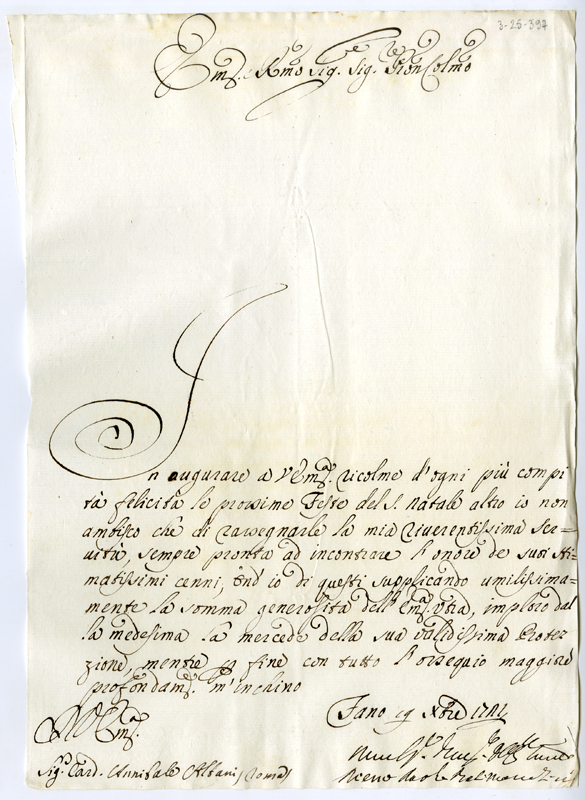 3-25-397
Em.o e Rmo Sig. Sig. Pron Colmo
In augurare a V. Em.a ricolme d'ogni più compi
tà felicità le prossime Feste del S. Natale altro io non
ambisco che di rassegnarle la mia riverentissima ser=
vitù, sempre pronta ad incontrare l'onore de suoi sti=
matissimi cenni, ond' io di questi supplicando umilissima=
mente la somma generosità dell' Em.a Vra, imploro dal
la medesima la mercede della sua validissima Protez
zione, mentre p fine con tutto l'ossequio maggiore
profondam.e m'inchino
Fano 19 Xbre
Em.a
Sig.r Card. Annibale Albani, Roma